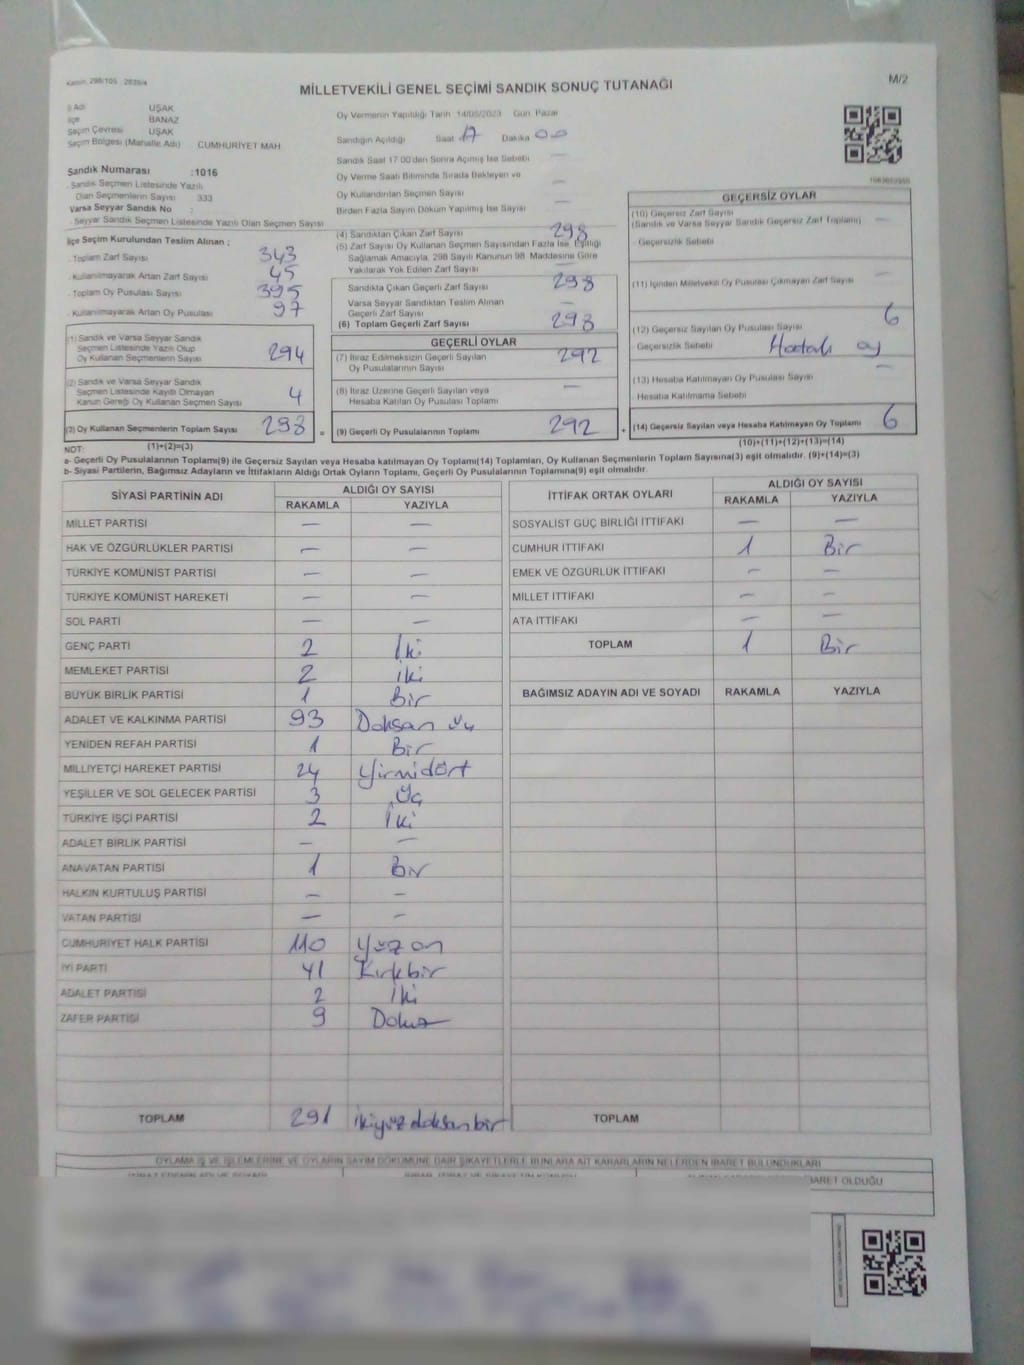 Kanun: 298/105 , 2839/4
MİLLETVEKİLİ GENEL SEÇİMİ SANDIK SONUÇ TUTANAĞI
M/2
İl Adı UŞAK
İlçe BANAZ
Seçim Çevresi UŞAK
Seçim Bölgesi (Mahalle Adı) CUMHURİYET MAH
Sandık Numarası :1016
Sandık Seçmen Listesinde Yazılı
Olan Seçmenlerin Sayısı 333
Varsa Seyyar Sandık No :
Seyyar Sandık Seçmen Listesinde Yazılı Olan Seçmen Sayısı
İlçe Seçim Kurulundan Teslim Alınan ;
Toplam Zarf Sayısı 343
Kullanılmayarak Artan Zarf Sayısı 45
Toplam Oy Pusulası Sayısı 395
Kullanılmayarak Artan Oy Pusulası 97
(1) Sandık ve Varsa Seyyar Sandık
Seçmen Listesinde Yazılı Olup
Oy Kullanan Seçmenlerin Sayısı 294
(2) Sandık ve Varsa Seyyar Sandık
Seçmen Listesinde Kayıtlı Olmayan
Kanun Gereği Oy Kullanan Seçmen Sayısı 4
(3) Oy Kullanan Seçmenlerin Toplam Sayısı 298
(1)+(2)=(3)
Oy Vermenin Yapıldığı Tarih 14/05/2023 Gün Pazar
Sandığın Açıldığı Saat 17 Dakika 00
Sandık Saat 17:00'den Sonra Açılmış İse Sebebi —
Oy Verme Saati Bitiminde Sırada Bekleyen ve
Oy Kullandırılan Seçmen Sayısı —
Birden Fazla Sayım Döküm Yapılmış İse Sayısı —
(4) Sandıktan Çıkan Zarf Sayısı 298
(5) Zarf Sayısı Oy Kullanan Seçmen Sayısından Fazla İse, Eşitliği
Sağlamak Amacıyla, 298 Sayılı Kanunun 98. Maddesine Göre
Yakılarak Yok Edilen Zarf Sayısı —
Sandıkta Çıkan Geçerli Zarf Sayısı 298
Varsa Seyyar Sandıktan Teslim Alınan
Geçerli Zarf Sayısı —
(6) Toplam Geçerli Zarf Sayısı 298
GEÇERLİ OYLAR
(7) İtiraz Edilmeksizin Geçerli Sayılan
Oy Pusulalarının Sayısı 292
(8) İtiraz Üzerine Geçerli Sayılan veya
Hesaba Katılan Oy Pusulası Toplamı —
= (9) Geçerli Oy Pusulalarının Toplamı 292
GEÇERSİZ OYLAR
(10) Geçersiz Zarf Sayısı
(Sandık ve Varsa Seyyar Sandık Geçersiz Zarf Toplamı) —
Geçersizlik Sebebi
(11) İçinden Milletvekili Oy Pusulası Çıkmayan Zarf Sayısı —
(12) Geçersiz Sayılan Oy Pusulası Sayısı 6
Geçersizlik Sebebi Hatalı oy
(13) Hesaba Katılmayan Oy Pusulası Sayısı —
Hesaba Katılmama Sebebi
+ (14) Geçersiz Sayılan veya Hesaba Katılmayan Oy Toplamı 6
(10)+(11)+(12)+(13)=(14)
NOT:
a- Geçerli Oy Pusulalarının Toplamı(9) ile Geçersiz Sayılan veya Hesaba katılmayan Oy Toplamı(14) Toplamları, Oy Kullanan Seçmenlerin Toplam Sayısına(3) eşit olmalıdır. (9)+(14)=(3)
b- Siyasi Partilerin, Bağımsız Adayların ve İttifakların Aldığı Ortak Oyların Toplamı, Geçerli Oy Pusulalarının Toplamına(9) eşit olmalıdır.
SİYASİ PARTİNİN ADI ALDIĞI OY SAYISI
RAKAMLA YAZIYLA
MİLLET PARTİSİ — —
HAK VE ÖZGÜRLÜKLER PARTİSİ — —
TÜRKİYE KOMÜNİST PARTİSİ — —
TÜRKİYE KOMÜNİST HAREKETİ — —
SOL PARTİ — —
GENÇ PARTİ 2 İki
MEMLEKET PARTİSİ 2 iki
BÜYÜK BİRLİK PARTİSİ 1 Bir
ADALET VE KALKINMA PARTİSİ 93 Doksan üç
YENİDEN REFAH PARTİSİ 1 Bir
MİLLİYETÇİ HAREKET PARTİSİ 24 Yirmidört
YEŞİLLER VE SOL GELECEK PARTİSİ 3 Üç
TÜRKİYE İŞÇİ PARTİSİ 2 İki
ADALET BİRLİK PARTİSİ — —
ANAVATAN PARTİSİ 1 Bir
HALKIN KURTULUŞ PARTİSİ — —
VATAN PARTİSİ — —
CUMHURİYET HALK PARTİSİ 110 Yüz on
İYİ PARTİ 41 Kırkbir
ADALET PARTİSİ 2 İki
ZAFER PARTİSİ 9 Dokuz
TOPLAM 291 ikiyüzdoksanbir
İTTİFAK ORTAK OYLARI ALDIĞI OY SAYISI
RAKAMLA YAZIYLA
SOSYALİST GÜÇ BİRLİĞİ İTTİFAKI — —
CUMHUR İTTİFAKI 1 Bir
EMEK VE ÖZGÜRLÜK İTTİFAKI — —
MİLLET İTTİFAKI — —
ATA İTTİFAKI — —
TOPLAM 1 Bir
BAĞIMSIZ ADAYIN ADI VE SOYADI RAKAMLA YAZIYLA
TOPLAM
OYLAMA İŞ VE İŞLEMLERİNE VE OYLARIN SAYIM DÖKÜMÜNE DAİR ŞİKAYETLERLE BUNLARA AİT KARARLARIN NELERDEN İBARET BULUNDUKLARI